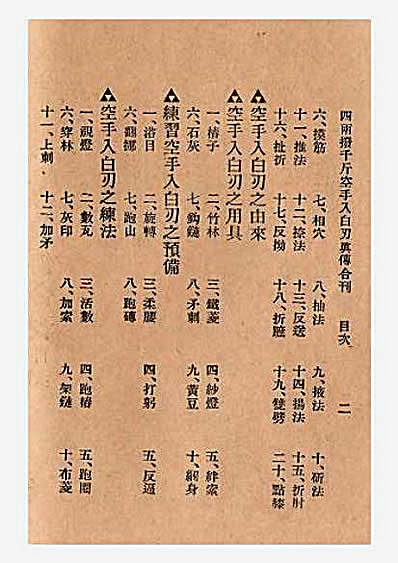 四兩撥千斤空手入白刃眞傳合刊 目次 二
六、摸筋 七、相穴 八、抽法 九、掖法 十、斫法
十一、推法 十二、捺法 十三、反送 十四、揚法 十五、折肘
十六、扯折 十七、反拗 十八、折腰 十九、雙劈 二十、點膝
空手入白刃之由來
空手入白刃之用具
一、樁子 二、竹林 三、鐵菱 四、紗燈 五、絆索
六、石灰 七、鈎鏈 八、矛刺 九、黄豆 十、綱身
練習空手入白刃之預備
一、浴目 二、旋轉 三、柔腰 四、打躬 五、反逼
六、翻挪 七、跑山 八、跑磚
空手入白刃之練法
一、視燈 二、數瓦 三、活數 四、跑樁 五、跑圈
六、穿林 七、灰印 八、加索 九、架鏈 十、布菱
十一、上刺 十二、加矛